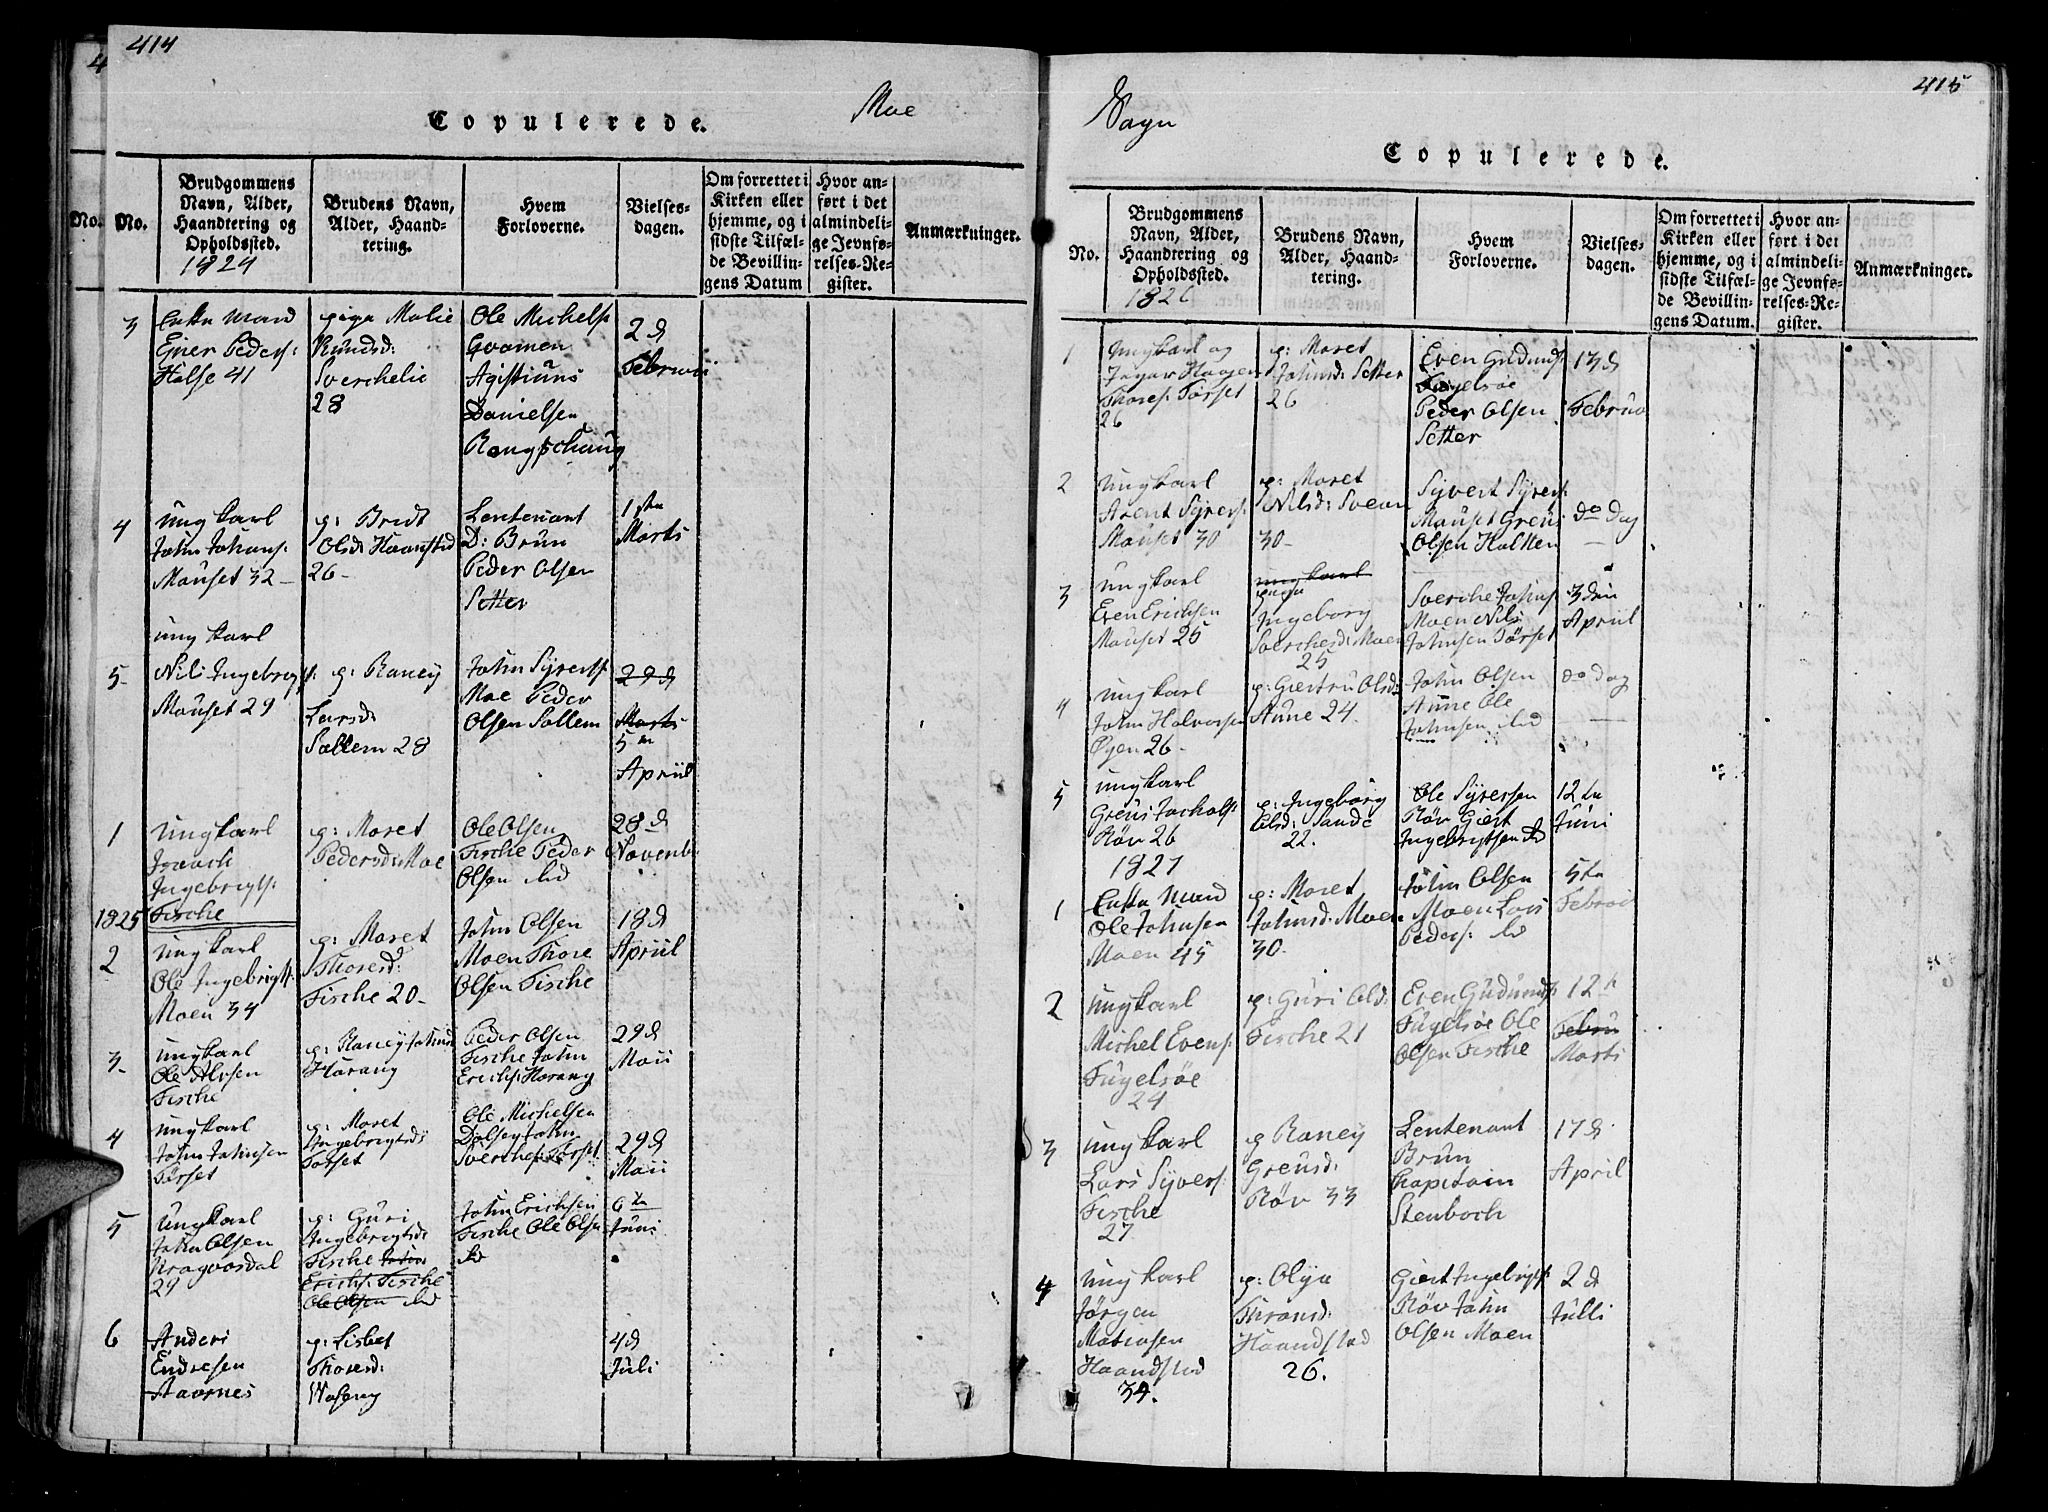 414
Copulerede.
Moe
No.
No.
Brudgommens
Navn, Alder,
Haandtering og
Opholdssted.
1824
Brudens Navn,
Alder, Haand-
tering.
Hvem
Forloverne.
Vielses-
dagen.
Om forrettet i
Kirken eller
hjemme, og i
sidste Tilfæl-
de Bevillin-
gens Datum
Hvor an-
ført i det
almindeli-
ge Jevnfø-
relses-Re-
gister.
Anmærkninger.
3
Enke Mand
Ejner Peders:
Halse 41
piga Malie
Knudsd:
Sverchelie
28
Ole Michels:
Goomen
Agistinus
Danielsen
Rangschaug
2d
Februari
4
Ung karl
John Johans:
Mauset 32
p: Bridt
Olsd: Haanstad
26
Lentenant
D: Brun
Peder Olsen
Setter
1ste
Marts
5
ung karl
Nils Ingebrigts:
Mauset 29
p: Raney
Larsd:
Sollem 28
John Syverts:
Moe Peder
Olsen Sollem
29d
Marts
5te
Apriil
1
Ungkarl
Ingebrigts:
Fische
p: Maret
Pedersd: Moe
Ole Olsen
Fische Peder
Olsen ibid
28d
Novenb:
1825
2
Ung karl
Ole Ingebrigts:
Moen 34
p: Maret
Thoresd:
Fische 20
John Olsen
Moen Thore
Olsen Fische
18d
Apriil
3
Ungkarl
Ole Alvsen
Fische
p: Raney Johnsd
Harang
Peder Olsen
Fische John
Erichs: Harang
29d
Maii
4
Ungkarl
John Johnsen
Tørset
p: Maret
Ingebrigtsd:
Torset
Ole Michelsen
Dalsey John
Sverches: Tørset
29d
Maii
5
Ungkarl
John Olsen
Kragvasdal
29
p: Guri
Ingebrigtsd:
Fische John
Erichs: Fische
Ole Olsen ibid
John Erichsen
Fische Ole Olsen
ibid
6te
Juni
6
Anders
Endresen
Aavrnes
p: Lisbet
Thoresd:
Waseng
4d
Juli
415
Sogn
Copulerede.
No.
Brudgommens
Navn, Alder,
Haandtering og
Opholdssted.
1826
Brudens Navn,
Alder, Haand-
tering.
Hvem
Forloverne.
Vielses-
dagen.
Om forrettet i
Kirken eller
hjemme, og i
sidste Tilfæl-
de Bevillin-
gens Datum.
Hvor an-
ført i det
almindeli-
ge Jevnfø-
relses-Re-
gister.
Anmærkninger.
1
Ungkarl og
Jægar Haagen
Thores: Tørset
26
p: Maret
Johnsd: Setter
26
Even Gudunds:
Fugelsøe
Peder Olsen
Setter
13d
Februa
2
Ungkarl
Arent Syvers:
Mauset 30
p: Maret
Nilsd: Sveen
30
Syvert Syvers:
Mauset Greus
Olsen Halten
do Dag
3
Ungkarl
Even Erichsen
Mauset 25
ungkarl
piga
Ingeborg
Sverchesd: Moen
25
Sverche Johns:
Moen Nils
Johnsen Tørset
3die
Apriil
4
Ung karl
John Halvorsen
Øyen 26
p: Giertru Olsd:
Aune 24
John Olsen
Aune Ole
Johnsen ibid
do Dag
5
Ungkarl
Greus Jachobs:
Røv 26
p: Ingeborg
Olsd: Sande
22.
Ole Syversen
Røv Giert
Ingebrigtsen do
12te
Juni
1827
1
Enke Mand
Ole Johnsen
Moen 45
p: Maret
Johnsd: Moen
30
John Olsen
Moen Lars
Peders: ibid
5te
Februari
2
Ungkarl
Michel Evens:
Fugelsøe
24
p: Guri Olsd:
Fische 21
Even Gudunds:
Fugelsøe Ole
Olsen Fische
12te
Febru
Marts
3
Ung karl
Lars Syvers:
Fische
27
p Raney
Greusd:
Røv 33
Lentenant
Brun
Kapitain
Stenboch
17d
April
4
Ung karl
Jørgen
Matiasen
Haandstad
34.
p: Olya
Thronsd:
Haandstad
26.
Giert Ingebrigts:
Røv John
Olsen Moen
2d
Julli